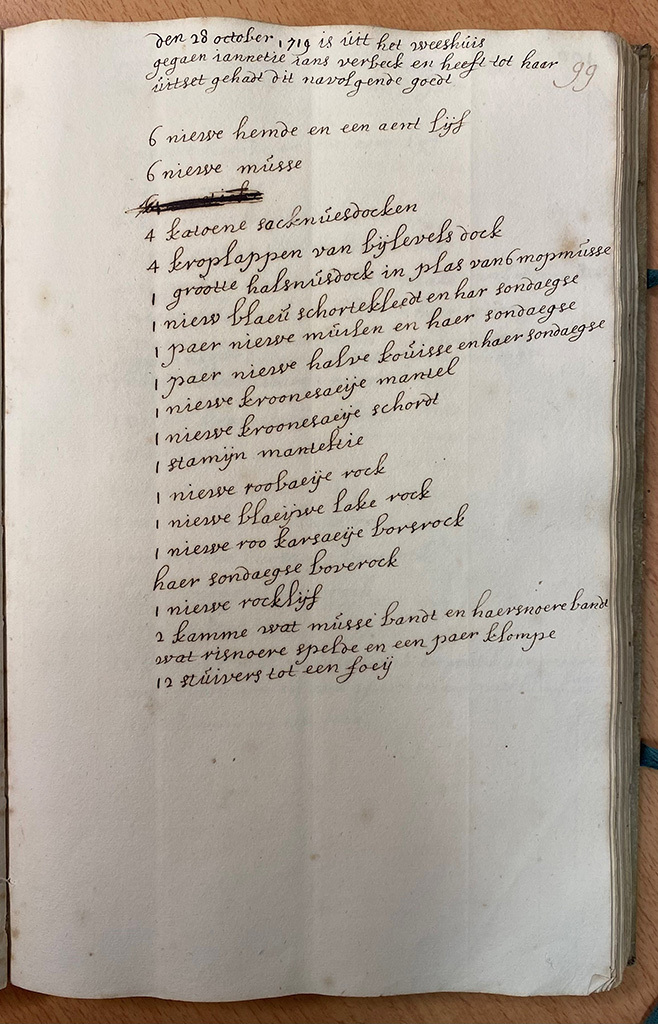 den 28 october 1719 is uit het weeshuis
gegaen iannetie ians verbeck en heeft tot haer
uittset gehadt dit navolgende goedt
99
6 niewe hemde en een aent lijf
6 niewe müsse
4 katoene sacknuesdocken
4 kroplappen van bijlevels dock
1 grootte halsnusdock in plas van 6 mopmüsse
1 niew blaeü schortekleedt en har sondaegse
1 paer niewe müilen en haer sondaegse
1 paer niewe halve koüisse en haer sondaegse
1 niewe kroonesaeije mantel
1 niewe kroonesaeije schordt
1 stamijn manteltie
1 niewe roobaeije rock
1 niewe blaeijwe lake rock
1 niewe roo karsaeije borsrock
haer sondaegse boverock
1 niewe rocklijf
2 kamme wat müsse bandt en haersnoere bandt
wat risnoere spelde en een paer klompe
12 stüivers tot een foeij